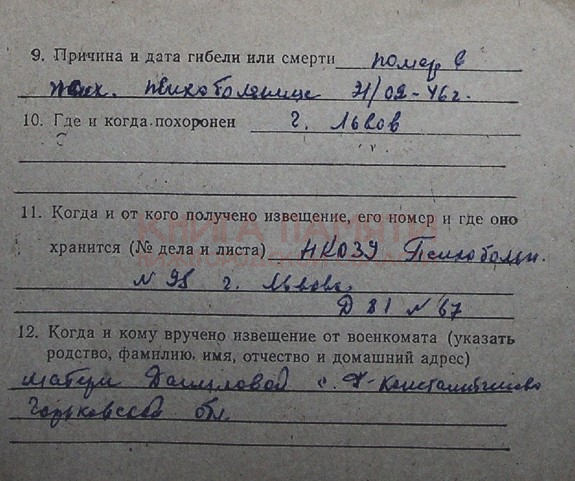 9. Причина и дата гибели или смерти помер в
псих. психобольнице 21/02-46 г.
10. Где и когда похоронен г. Львов
11. Когда и от кого получено извещение, его номер и где оно
хранится (№ дела и листа) НКОЗУ Психобольн.
N 98 г. Львова
Д 81 N 67
12. Когда и кому вручено извещение от военкомата (указать
родство, фамилию, имя, отчество и домашний адрес)
матери Даниловой с. Д-Константиново
Горьковской обл
КНИГА ПАМЯТИ